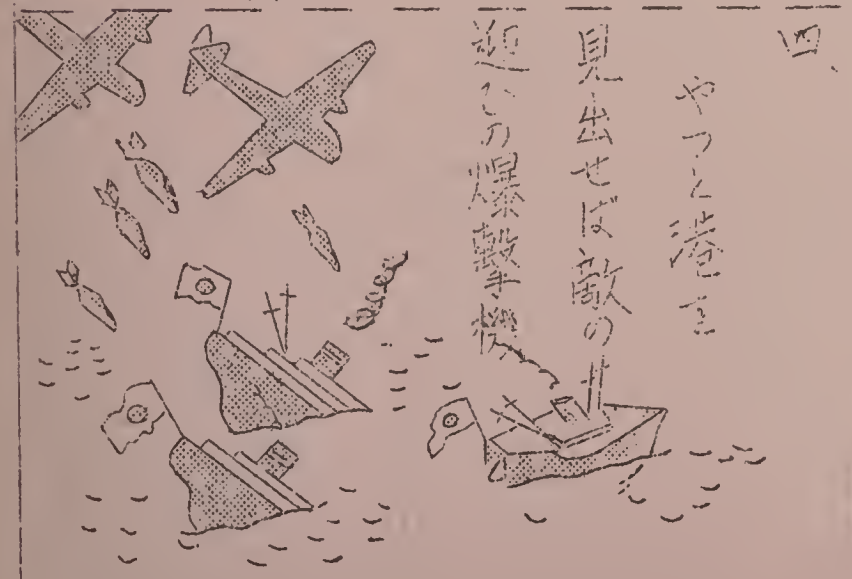 四、
やつと港を
見出せば敵の
迎ひの爆撃機